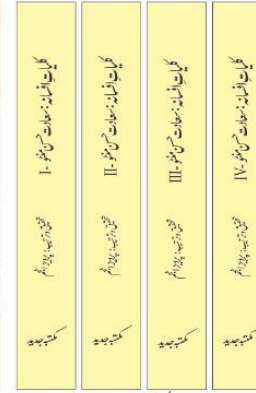 کلیاتِ افسانہ: سعادت حسن منٹو -I
تحقیق و ترتیب: پرویز انجم
مکتبہ جدید
کلیاتِ افسانہ: سعادت حسن منٹو -II
تحقیق و ترتیب: پرویز انجم
مکتبہ جدید
کلیاتِ افسانہ: سعادت حسن منٹو -III
تحقیق و ترتیب: پرویز انجم
مکتبہ جدید
کلیاتِ افسانہ: سعادت حسن منٹو -IV
تحقیق و ترتیب: پرویز انجم
مکتبہ جدید